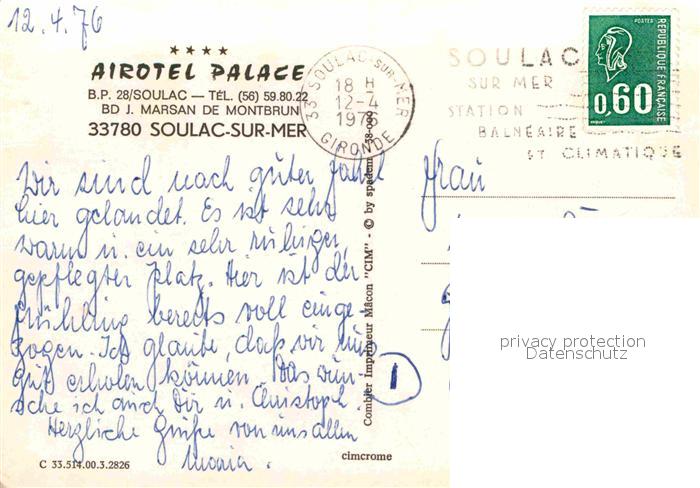 12.4.76
★★★★
AIROTEL PALACE
B.P. 28/SOULAC — TÉL. (56) 59.80.22
BD J. MARSAN DE MONTBRUN
33780 SOULAC-SUR-MER
33 SOULAC-SUR-MER
18 H
12-4
1976
GIRONDE
SOULAC
SUR MER
STATION
BALNÉAIRE
ET CLIMATIQUE
POSTES
RÉPUBLIQUE FRANÇAISE
0,60
Wir sind nach guter Fahrt
hier gelandet. Es ist sehr
warm u. ein sehr ruhiger,
gepflegter Platz. Hier ist der
Frühling bereits voll einge-
zogen. Ich glaube, daß wir uns
gut erholen können. Das wün-
sche ich auch Dir u. Christoph.
Herzliche Grüße von uns allen
Maria.
Frau
1
Combier Imprimeur Mâcon "CIM" - © by spadem
cimcrome
C 33.514.00.3.2826
privacy protection
Datenschutz